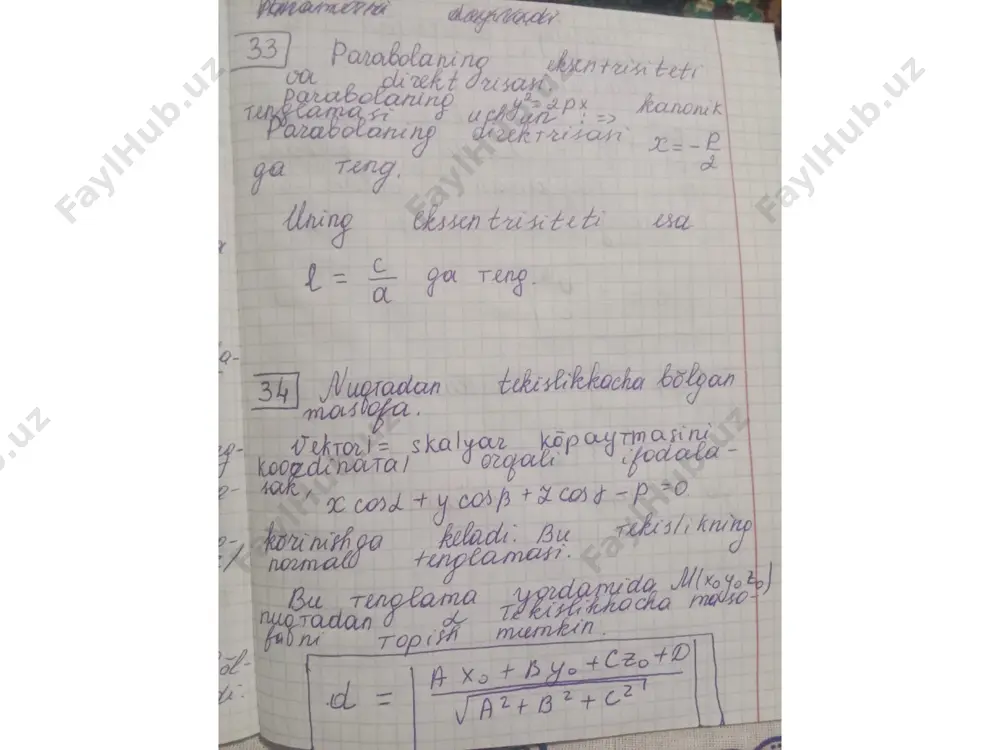 parametri deyiladi.
33 Parabolaning eksentrisiteti
va direktrisasi
parabolaning y²=2px kanonik
tenglamasi uchun : =>
Parabolaning direktrisasi x=-P/2
ga teng.
Uning ekssentrisiteti esa
l = c/a ga teng.
34 Nuqtadan tekislikkacha bŏlgan
masofa.
Vektorl= skalyar kŏpaytmasini
koordinatal orqali ifodala-
sak, x cosα + y cosβ + z cosγ - p = 0
kŏrinishga keladi. Bu tekislikning
normal tenglamasi.
Bu tenglama yordamida M(x₀y₀z₀)
nuqtadan α tekislikkacha maso-
fani topish mumkin.
d = |A x₀ + B y₀ + C z₀ + D / √A² + B² + C²|
FaylHub.uz
FaylHub.uz
FaylHub.uz
FaylHub.uz
FaylHub.uz